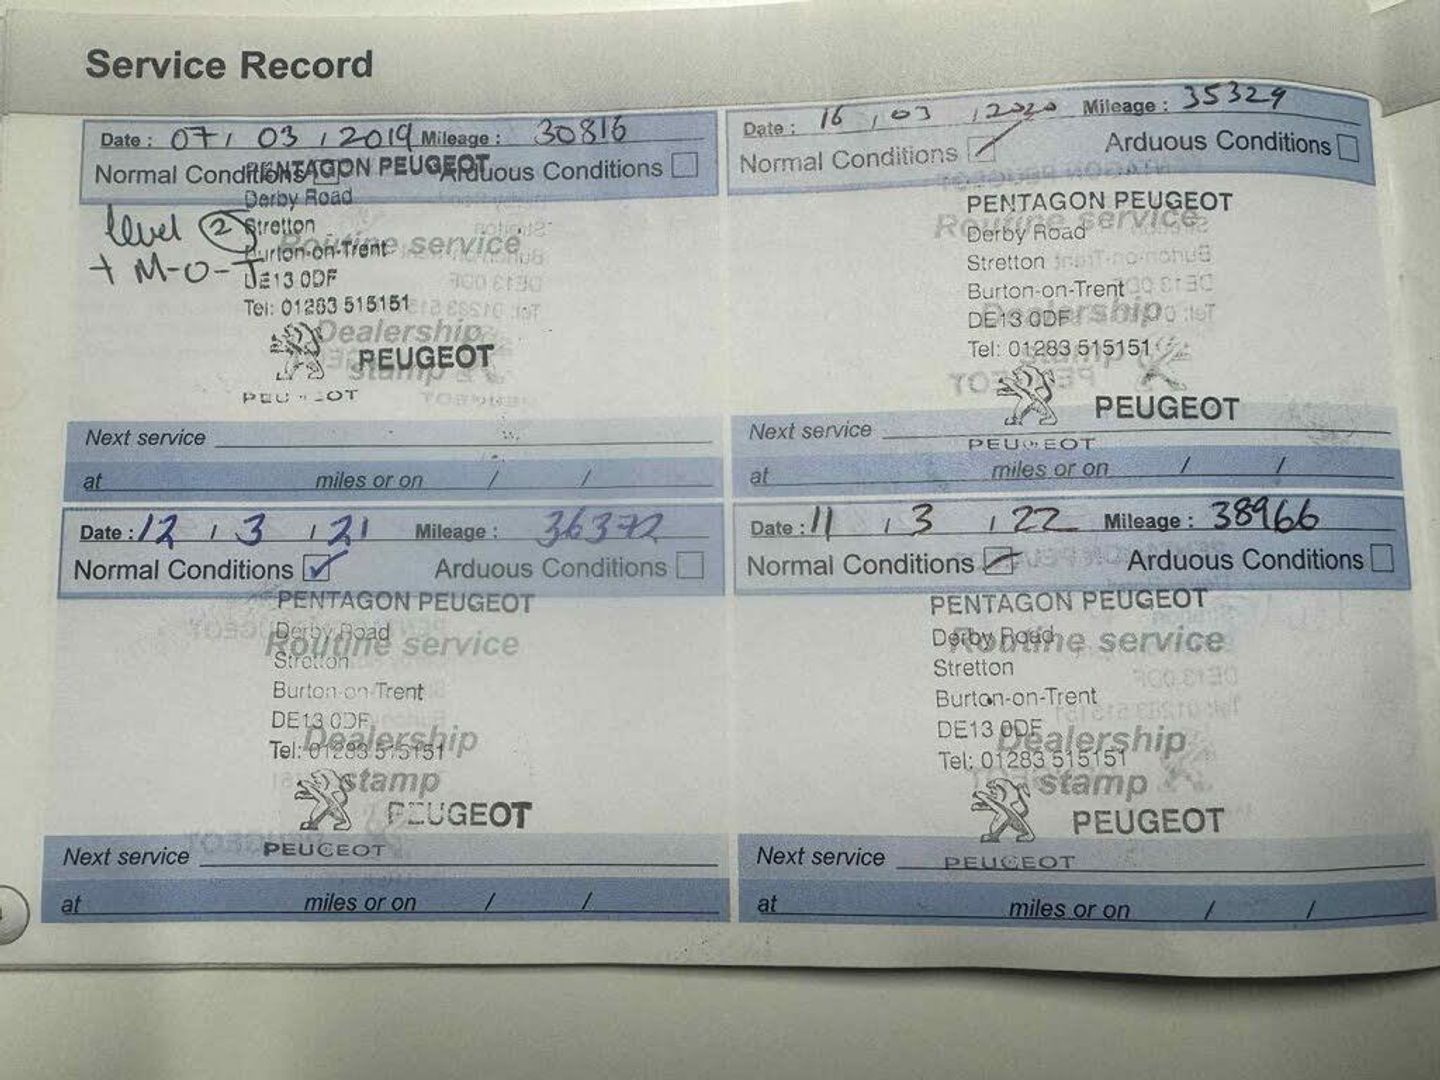 Service Record
Date : 07 / 03 / 2019 Mileage : 30816
Normal Conditions Arduous Conditions
PENTAGON PEUGEOT
Derby Road
Stretton
Burton-on-Trent
DE13 0DF
Tel: 01283 515151
level 2
+ M-O-T
Routine service
Dealership
stamp
PEUGEOT
PEUGEOT
Next service
at miles or on / /
Date : 16 / 03 / 2020 Mileage : 35329
Normal Conditions Arduous Conditions
PENTAGON PEUGEOT
Routine service
Derby Road
Stretton
Burton-on-Trent
DE13 0DF
Dealership
Tel: 01283 515151
stamp
PEUGEOT
PEUGEOT
Next service
at miles or on / /
Date : 12 / 3 / 21 Mileage : 36372
Normal Conditions Arduous Conditions
PENTAGON PEUGEOT
Derby Road
Routine service
Stretton
Burton-on-Trent
DE13 0DF
Dealership
Tel: 01283 515151
stamp
PEUGEOT
PEUGEOT
Next service
at miles or on / /
Date : 11 / 3 / 22 Mileage : 38966
Normal Conditions Arduous Conditions
PENTAGON PEUGEOT
Derby Road
Routine service
Stretton
Burton-on-Trent
DE13 0DF
Dealership
Tel: 01283 515151
stamp
PEUGEOT
PEUGEOT
Next service
at miles or on / /